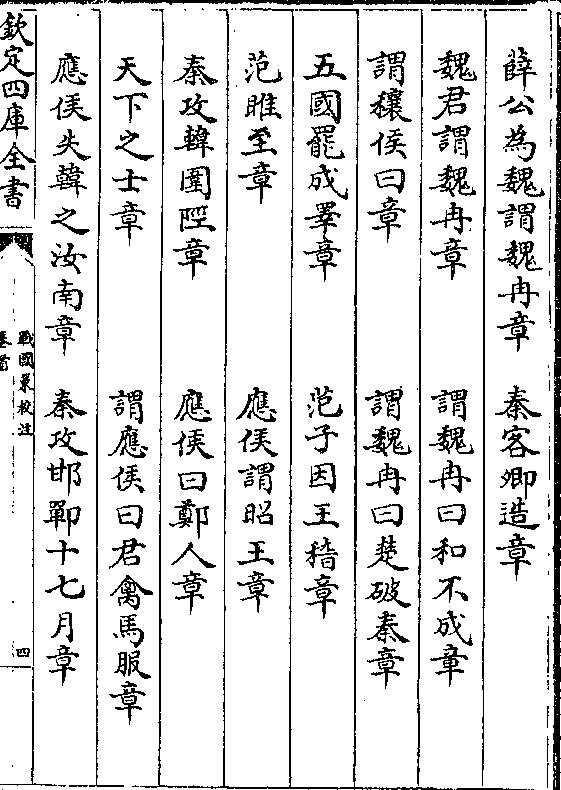 薛公為魏謂魏冉章　秦客卿造章
魏君謂魏冉章　謂魏冉曰和不成章
謂穰侯曰章　謂魏冉曰楚破秦章
五國罷成睪章　范子因王稽章
范睢至章　應侯謂昭王章
秦攻韓圍陘章　應侯曰鄭人章
天下之士章　謂應侯曰君禽馬服章
應侯失韓之汝南章　秦攻邯鄲十七月章
欽定四庫全書
戰國策校注
卷首
四